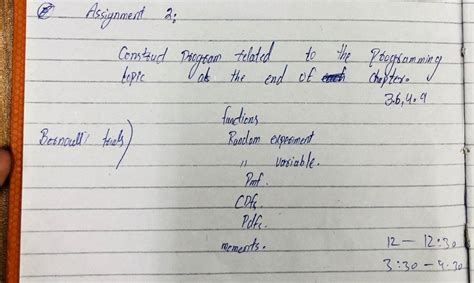 Assignment 2:
Construct program related to the programming
topic at the end of each chapter.
3.6, 4.9
functions
Bernoulli trials) Random experiment
" variable.
Pmf.
CDFs.
Pdfs.
moments.
12 - 12:30
3:30 - 4:30